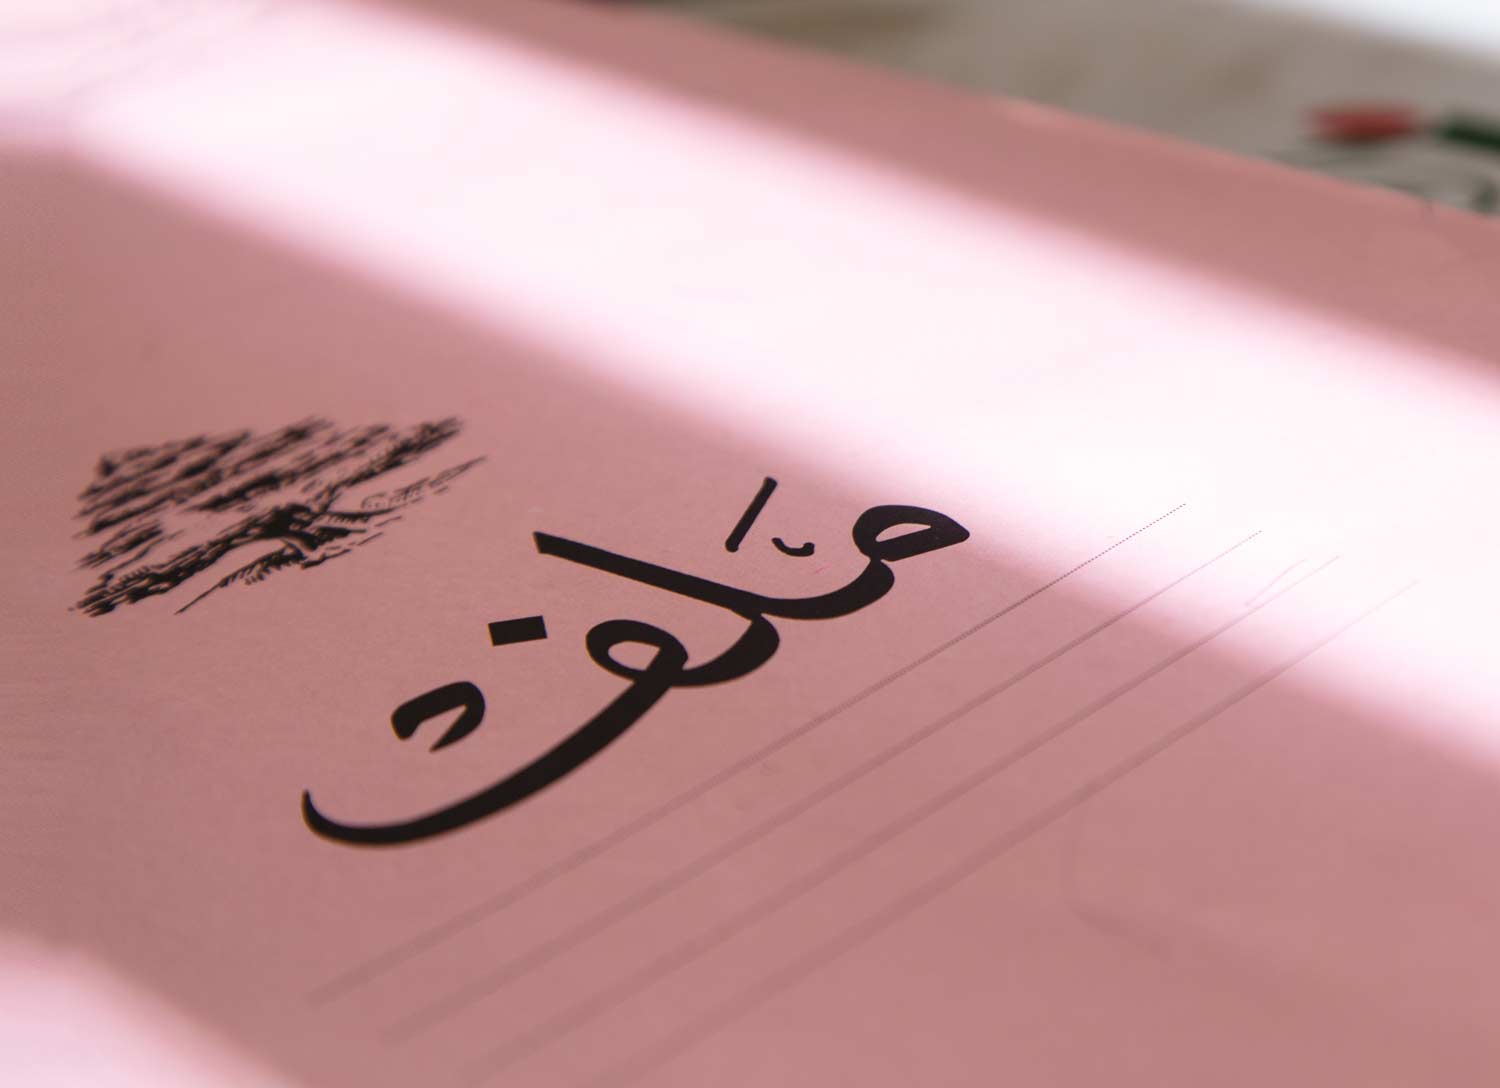 ملف